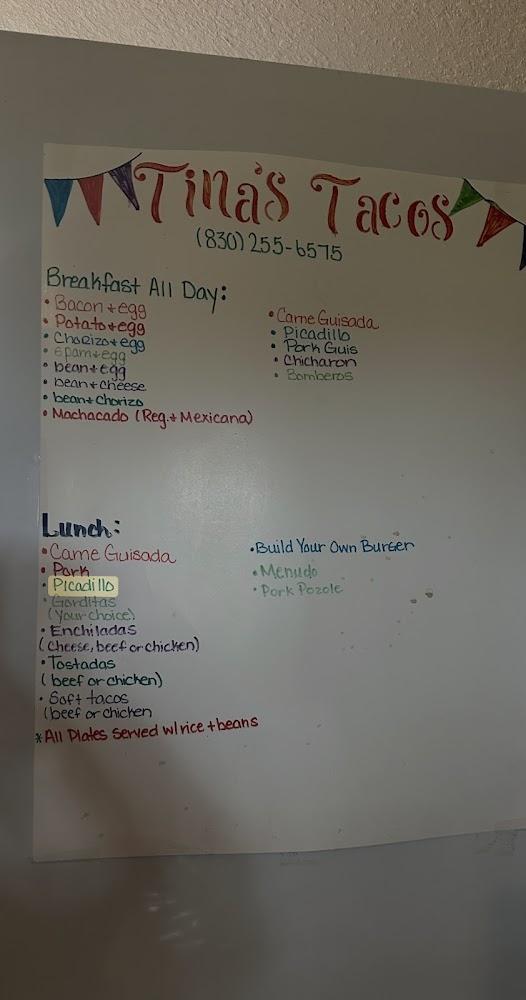 Tina's Tacos
(830)255-6575
Breakfast All Day:
• Bacon + egg
• Potato + egg
• Chorizo + egg
• epam + egg
• bean + egg
• bean + cheese
• bean + chorizo
• Machacado (Reg. + Mexicana)
• Carne Guisada
• Picadillo
• Pork Guis
• Chicharon
• Bomberos
Lunch:
• Carne Guisada
• Pork
• Picadillo
• Gorditas
(Your choice)
• Enchiladas
(cheese, beef or chicken)
• Tostadas
(beef or chicken)
• Soft tacos
(beef or chicken
* All Plates served w/ rice + beans
• Build Your Own Burger
• Menudo
• Pork Pozole